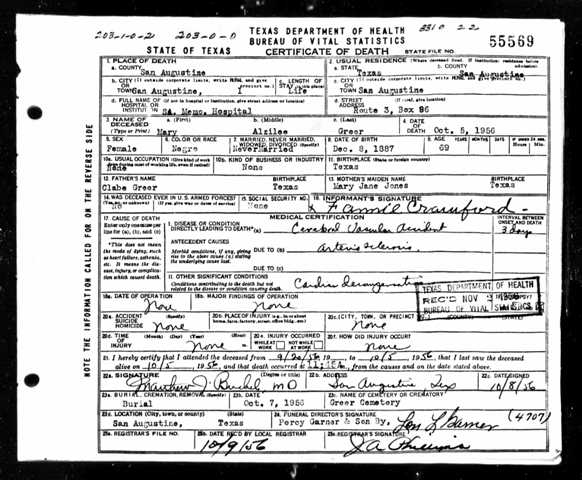 203-1-0-2 203-0-0
TEXAS DEPARTMENT OF HEALTH
BUREAU OF VITAL STATISTICS
STATE OF TEXAS CERTIFICATE OF DEATH STATE FILE NO. 55569
NOTE THE INFORMATION CALLED FOR ON THE REVERSE SIDE
1. PLACE OF DEATH
a. COUNTY
San Augustine
2. USUAL RESIDENCE
a. STATE
Texas
b. COUNTY
San Augustine
b. CITY OR TOWN San Augustine, 1
c. LENGTH OF STAY
Life
c. CITY OR TOWN San Augustine
d. FULL NAME OF HOSPITAL OR INSTITUTION SA. Memo. Hospital
d. STREET ADDRESS (If rural, give location)
Route 3, Box 86
3. NAME OF DECEASED (Type or Print)
a. (First) Mary
b. (Middle) Alzilee
c. (Last) Greer
4. DATE OF DEATH Oct. 5, 1956
5. SEX
Female
6. COLOR OR RACE
Negro
7. MARRIED, NEVER MARRIED, WIDOWED, DIVORCED (Specify)
NeverMarried
8. DATE OF BIRTH
Dec. 8, 1887
9. AGE YEARS
69
MONTHS DAYS
10a. USUAL OCCUPATION
None
10b. KIND OF BUSINESS OR INDUSTRY
None
11. BIRTHPLACE (State or foreign country)
Texas
12. FATHER'S NAME
Clabe Greer
BIRTHPLACE
Texas
13. MOTHER'S MAIDEN NAME
Mary Jane Jones
BIRTHPLACE
Texas
14. WAS DECEASED EVER IN U.S. ARMED FORCES?
No
15. SOCIAL SECURITY NO.
None
16. INFORMANT'S SIGNATURE
Crawford
17. CAUSE OF DEATH
Enter only one cause per line for (a), (b), and (c)
MEDICAL CERTIFICATION
INTERVAL BETWEEN ONSET AND DEATH
I. DISEASE OR CONDITION DIRECTLY LEADING TO DEATH (a) Cerebral Vascular Accident
3 days
*This does not mean the mode of dying, such as heart failure, asthenia, etc. It means the disease, injury, or complication which caused death.
ANTECEDENT CAUSES
Morbid conditions, if any, giving rise to the above cause (a) stating the underlying cause last.
DUE TO (b)
DUE TO (c)
II. OTHER SIGNIFICANT CONDITIONS
Conditions contributing to the death but not related to the disease or condition causing death.
TEXAS DEPARTMENT OF HEALTH
REC'D NOV 1956
BUREAU OF VITAL STATISTICS
18a. DATE OF OPERATION
None
18b. MAJOR FINDINGS OF OPERATION
None
20a. ACCIDENT SUICIDE HOMICIDE (Specify)
None
20b. PLACE OF INJURY
20c. (CITY, TOWN, OR PRECINCT NO.) (COUNTY) (STATE)
None
20d. TIME OF INJURY (Month) (Day) (Year) (Hour)
None
20e. INJURY OCCURRED
WHILE AT WORK NOT WHILE AT WORK
20f. HOW DID INJURY OCCUR?
None
21. I hereby certify that I attended the deceased from 9/20/56 to 10/5 1956, that I last saw the deceased
alive on 10/5 1956, and that death occurred at from the causes and on the date stated above.
22a. SIGNATURE (Degree or title)
22b. ADDRESS
San Augustine Tex
22c. DATE SIGNED
10/8/56
23a. BURIAL, CREMATION, REMOVAL (Specify)
Burial
23b. DATE
Oct. 7, 1956
23c. NAME OF CEMETERY OR CREMATORY
Greer Cemetery
23d. LOCATION (City, town, or county) (State)
San Augustine, Texas
24. FUNERAL DIRECTOR'S SIGNATURE
Percy Garner & Son By, (4707)
25a. REGISTRAR'S FILE NO.
25b. DATE REC'D BY LOCAL REGISTRAR
10/9/56
25c. REGISTRAR'S SIGNATURE